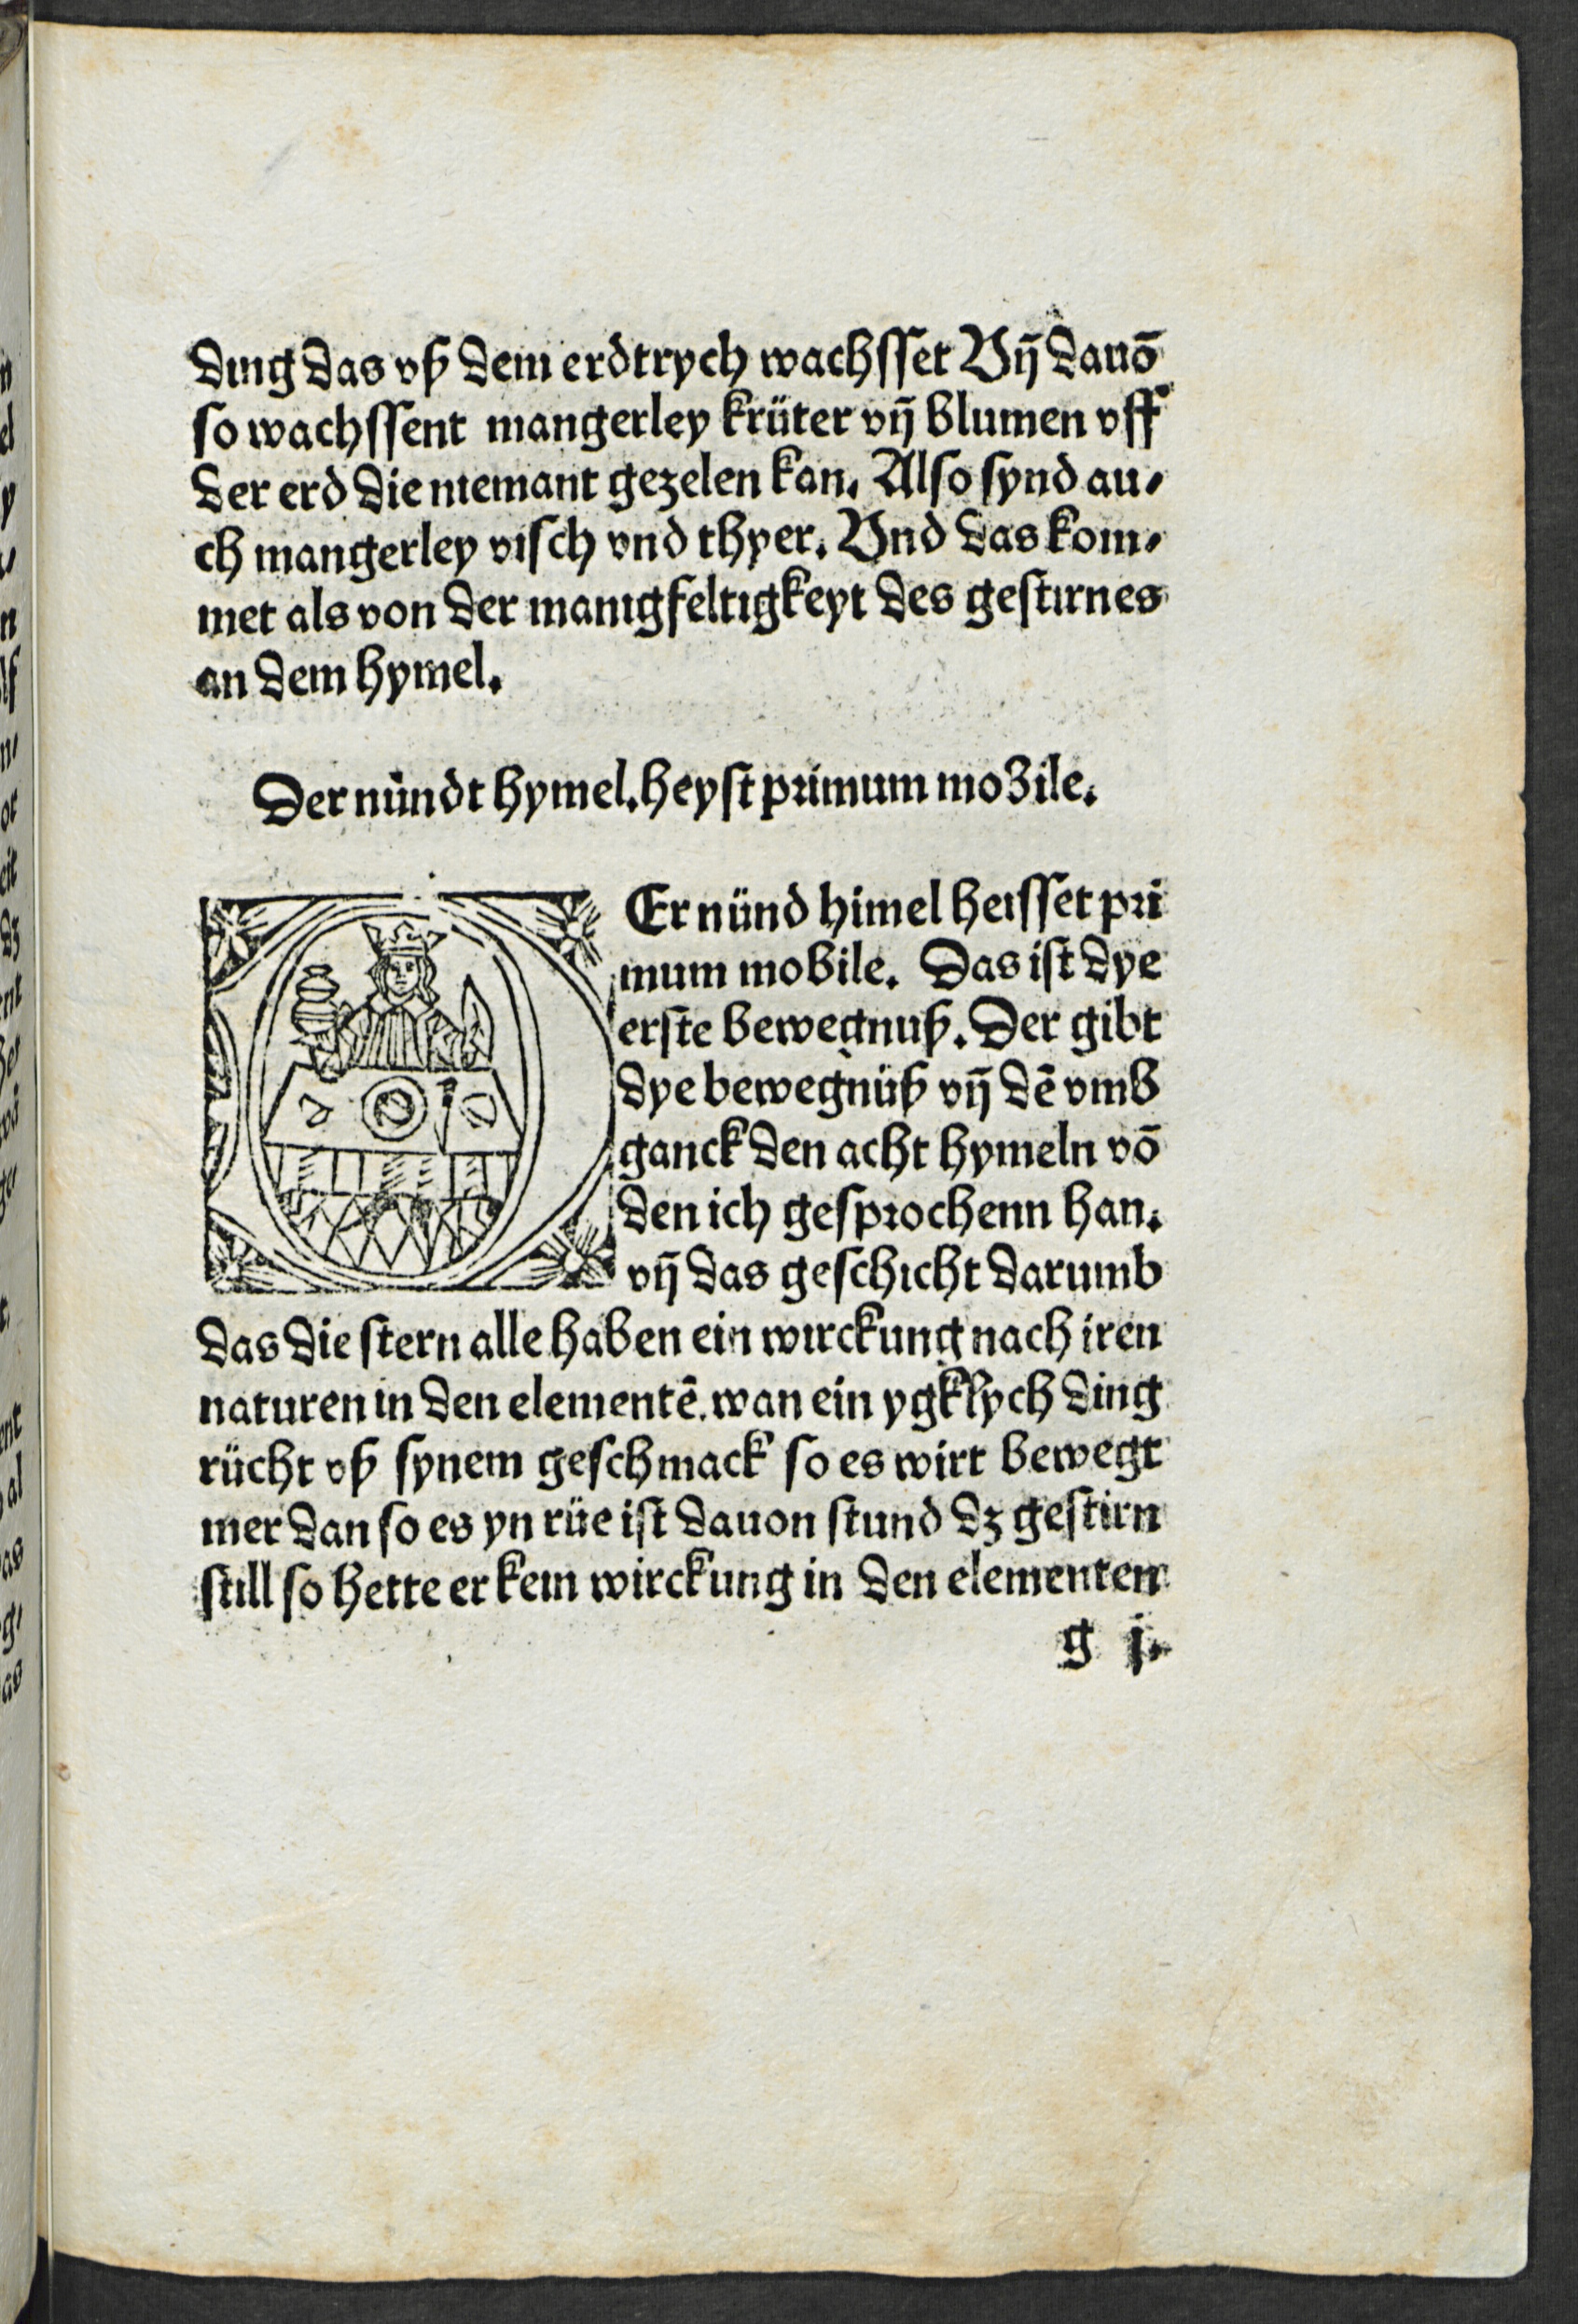 ding das vß dem erdtrych wachsset Vn̄ dauō
so wachssent mangerley krüter vn̄ blumen vff
der erd die niemant gezelen kan. Also synd au⸗
ch mangerley visch vnd thyer. Vnd das kom⸗
met als von der manigfeltigkeyt des gestirnes
an dem hymel.
Der nündt hymel. heyst primum mobile.
Er nünd himel heisset pri
mum mobile. Das ist dye
erste bewegnuß. Der gibt
dye bewegnüß vn̄ dē vmb
ganck den acht hymeln vō
den ich gesprochenn han.
vn̄ das geschicht darumb
das die stern alle haben ein wirckung nach iren
naturen in den elementē. wan ein ygklych ding
rücht vß synem geschmack so es wirt bewegt
mer dan so es yn rüe ist dauon stund dz gestirn
still so hette er kein wirckung in den elementen
g j.